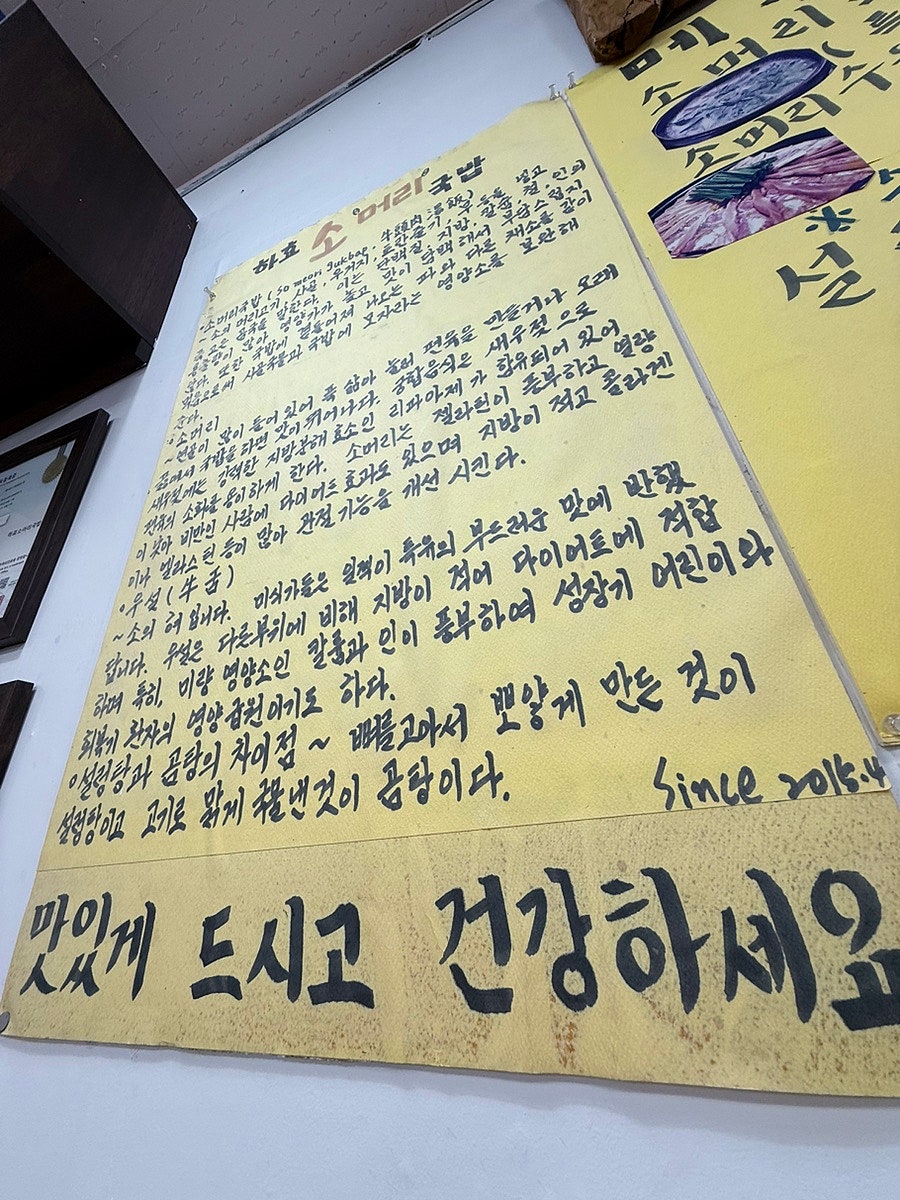 하효 소머리국밥
◦소머리국밥 (So meori gukbap, 牛頭肉湯飯)
~ 소의 머리고기, 사골, 우거지, 도란줄기, 무 등을 넣고
끓인 탕국을 말한다. 이는 단백질, 지방, 칼슘, 철, 인의
함량이 많아 영양가가 높고 맛이 담백해서 부담스럽지
않다. 또한 국밥에 곁들어져 나오는 파와 다른 채소를 같이
먹음으로써 사골국물과 국밥에 모자라는 영양소를 보완해
준다.
◦소머리
~ 연골이 많이 들어 있어 푹 삶아 눌러 편육을 만들거나 오래
끓여서 국밥을 하면 맛이 뛰어나다. 궁합음식은 새우젓으로
새우젓에는 강력한 지방분해효소인 리파아제가 함유되어 있어
편육의 소화를 용이하게 한다. 소머리는 젤라틴이 풍부하고 열량
이 낮아 비만인 사람에 다이어트효과도 있으며 지방이 적고 콜라겐
이나 엘라스틴 등이 많아 관절기능을 개선 시킨다.
◦우설 (牛舌)
~ 소의 혀 입니다. 미식가들은 일찍이 특유의 부드러운 맛에 반했
답니다. 우설은 다른부위에 비해 지방이 적어 다이어트에 적합
하며 특히, 미량 영양소인 칼륨과 인이 풍부하여 성장기 어린이와
회복기 환자의 영양급원이기도 하다.
◦설렁탕과 곰탕의 차이점 ~ 뼈를고아서 뽀얗게 만든 것이
설렁탕이고 고기로 맑게 국물낸것이 곰탕이다.
Since 2015.4
맛있게 드시고 건강하세요
메
소머리
소머리수
설